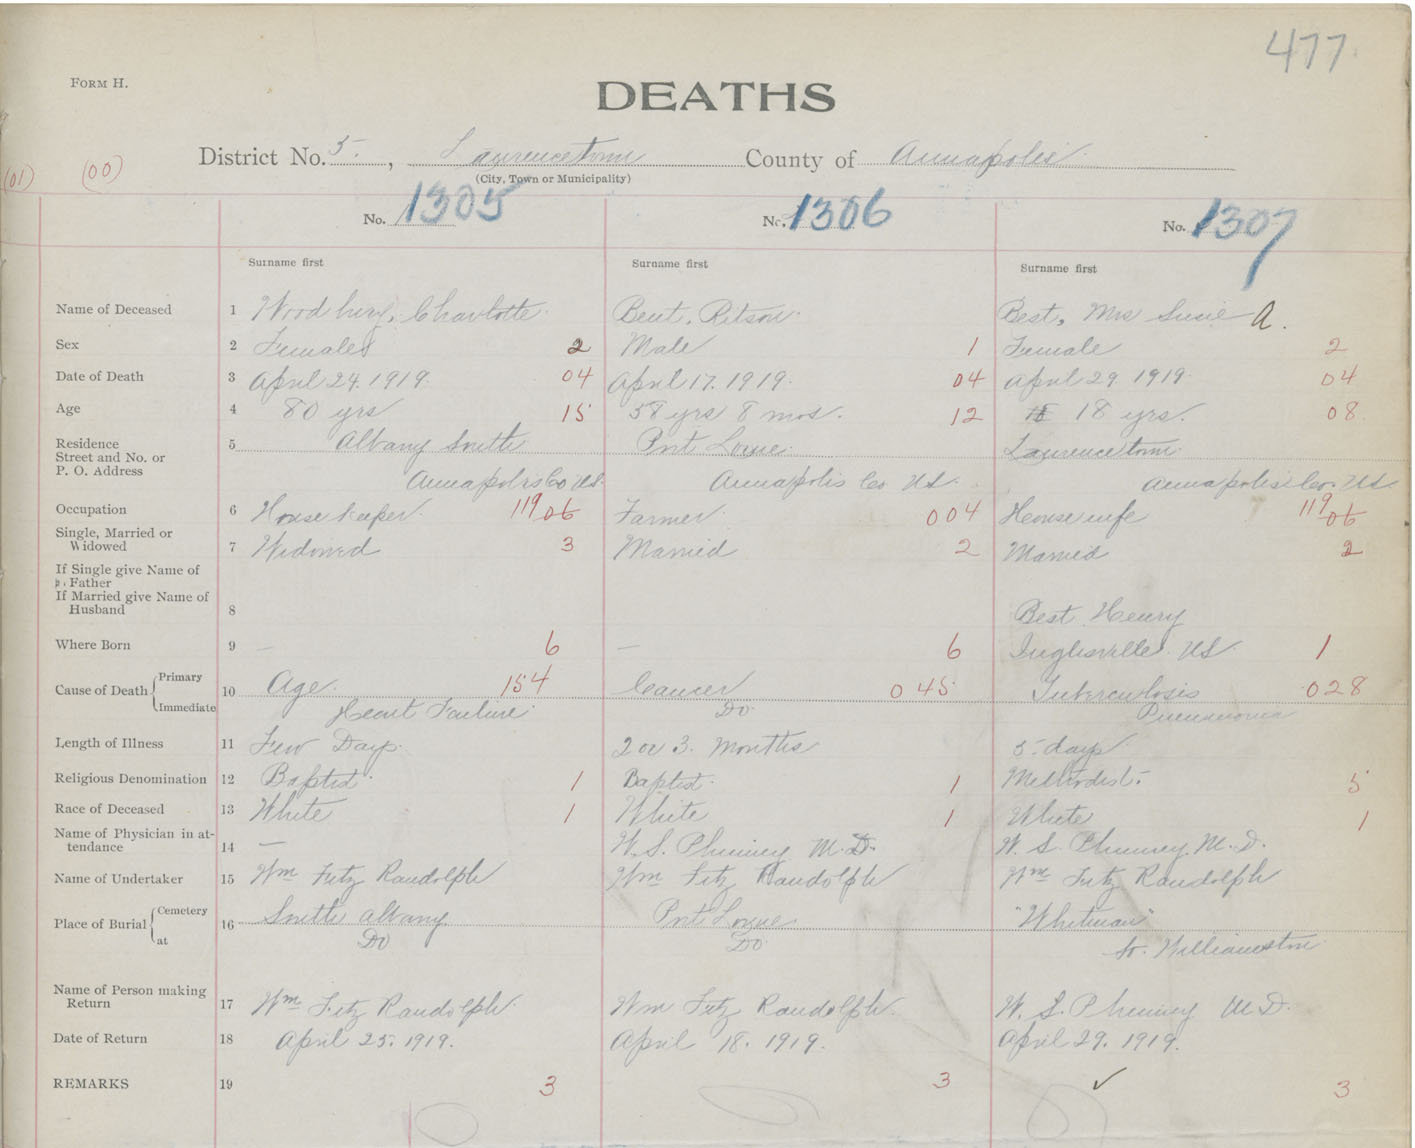 477
FORM H.
DEATHS
District No. 5., Laurencetown County of Annapolis
(City, Town or Municipality)
(01) (00)
No. 1305 No. 1306 No. 1307
Surname first Surname first Surname first
Name of Deceased 1 Woodbury, Charlotte Bent, Ritson Best, Mrs Susie A.
Sex 2 Females 2 Male 1 Female 2
Date of Death 3 April 24. 1919. 04 April 17. 1919. 04 April 29 1919. 04
Age 4 80 yrs 15 58 yrs 8 mos. 12 18 yrs. 08
Residence
Street and No. or 5 Albany South Port Lorne Laurencetown
P. O. Address
Annapolis Co NS. Annapolis Co NS. Annapolis Co. NS
Occupation 6 Housekeeper 119 06 Farmer 004 Housewife 119 06
Single, Married or
Widowed 7 Widowed 3 Married 2 Married 2
If Single give Name of
Father
If Married give Name of
Husband 8 Best Henry
Where Born 9 — 6 — 6 Inglisville NS. 1
Cause of Death Primary 10 Age. 154 Cancer 045 Tuberculosis 028
Immediate Heart Failure Do Pneumonia
Length of Illness 11 Few Days. 2 or 3. Months 5 days
Religious Denomination 12 Baptist 1 Baptist 1 Methodist. 5
Race of Deceased 13 White 1 White 1 White 1
Name of Physician in at-
tendance 14 — W. S. Phinney M. D. W. S. Phinney, M. D.
Name of Undertaker 15 Wm Fitz Randolph Wm Fitz Randolph Wm Fitz Randolph
Place of Burial Cemetery 16 South Albany Port Lorne "Whitman"
at Do Do So. Williamston
Name of Person making
Return 17 Wm Fitz Randolph Wm Fitz Randolph. W. S. Phinney M D.
Date of Return 18 April 25. 1919. April 18. 1919. April 29. 1919.
REMARKS 19 3 3 ✓ 3